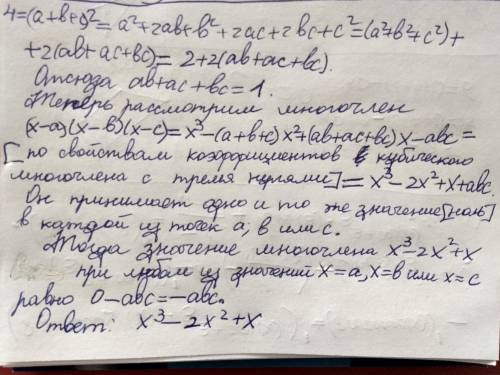 4=(a+b+c)²=a²+2ab+b²+2ac+2bc+c²=(a²+b²+c²)+
+2(ab+ac+bc)=2+2(ab+ac+bc).
Отсюда ab+ac+bc=1.
Теперь рассмотрим многочлен
(x-a)(x-b)(x-c)=x³-(a+b+c)x²+(ab+ac+bc)x-abc=
[по свойствам коэффициентов кубического
многочлена с тремя нулями]=x³-2x²+x+abc.
Он принимает одно и то же значение[ноль]
в каждой из точек a, b или c.
Тогда значение многочлена x³-2x²+x
при любом из значений x=a, x=b или x=c
равно 0-abc=-abc.
Ответ: x³-2x²+x